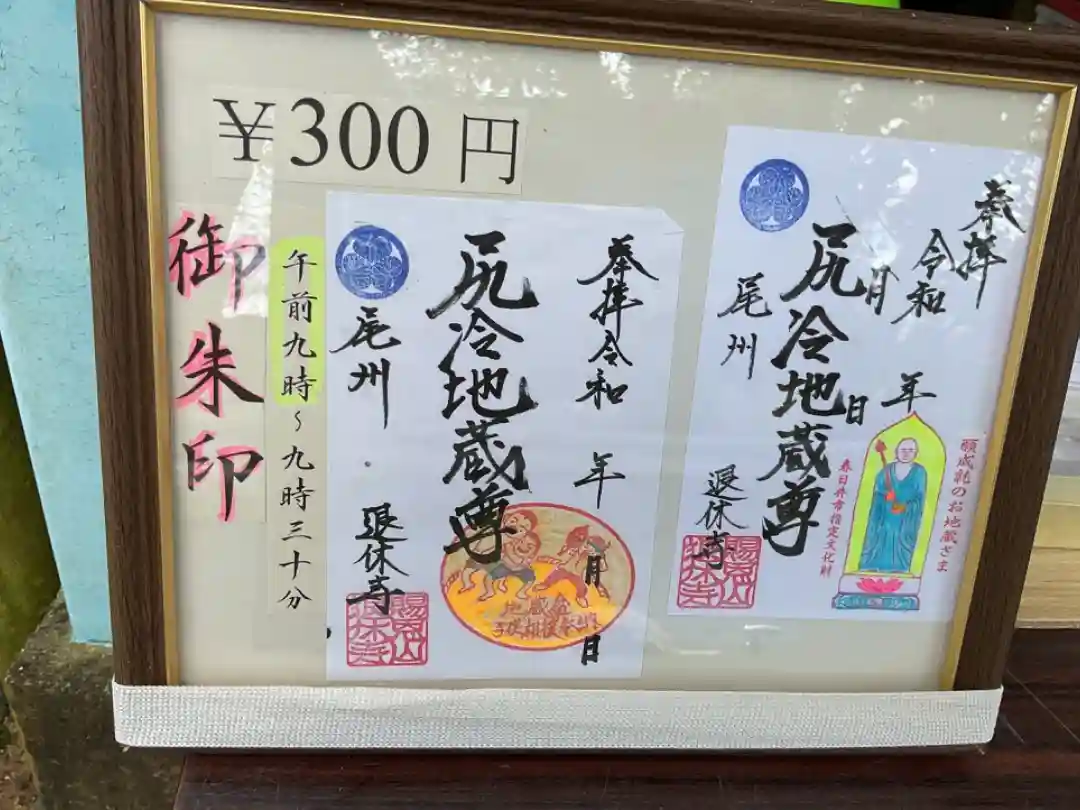 ¥300円
御朱印
午前九時~九時三十分
奉拝
令和 年 月 日
尻冷地蔵尊
尾州
退休寺
地蔵盆
子供相撲奉納
奉拝
令和 年
月 日
尻冷地蔵尊
尾州
退休寺
願成就のお地蔵さま
春日井市指定文化財